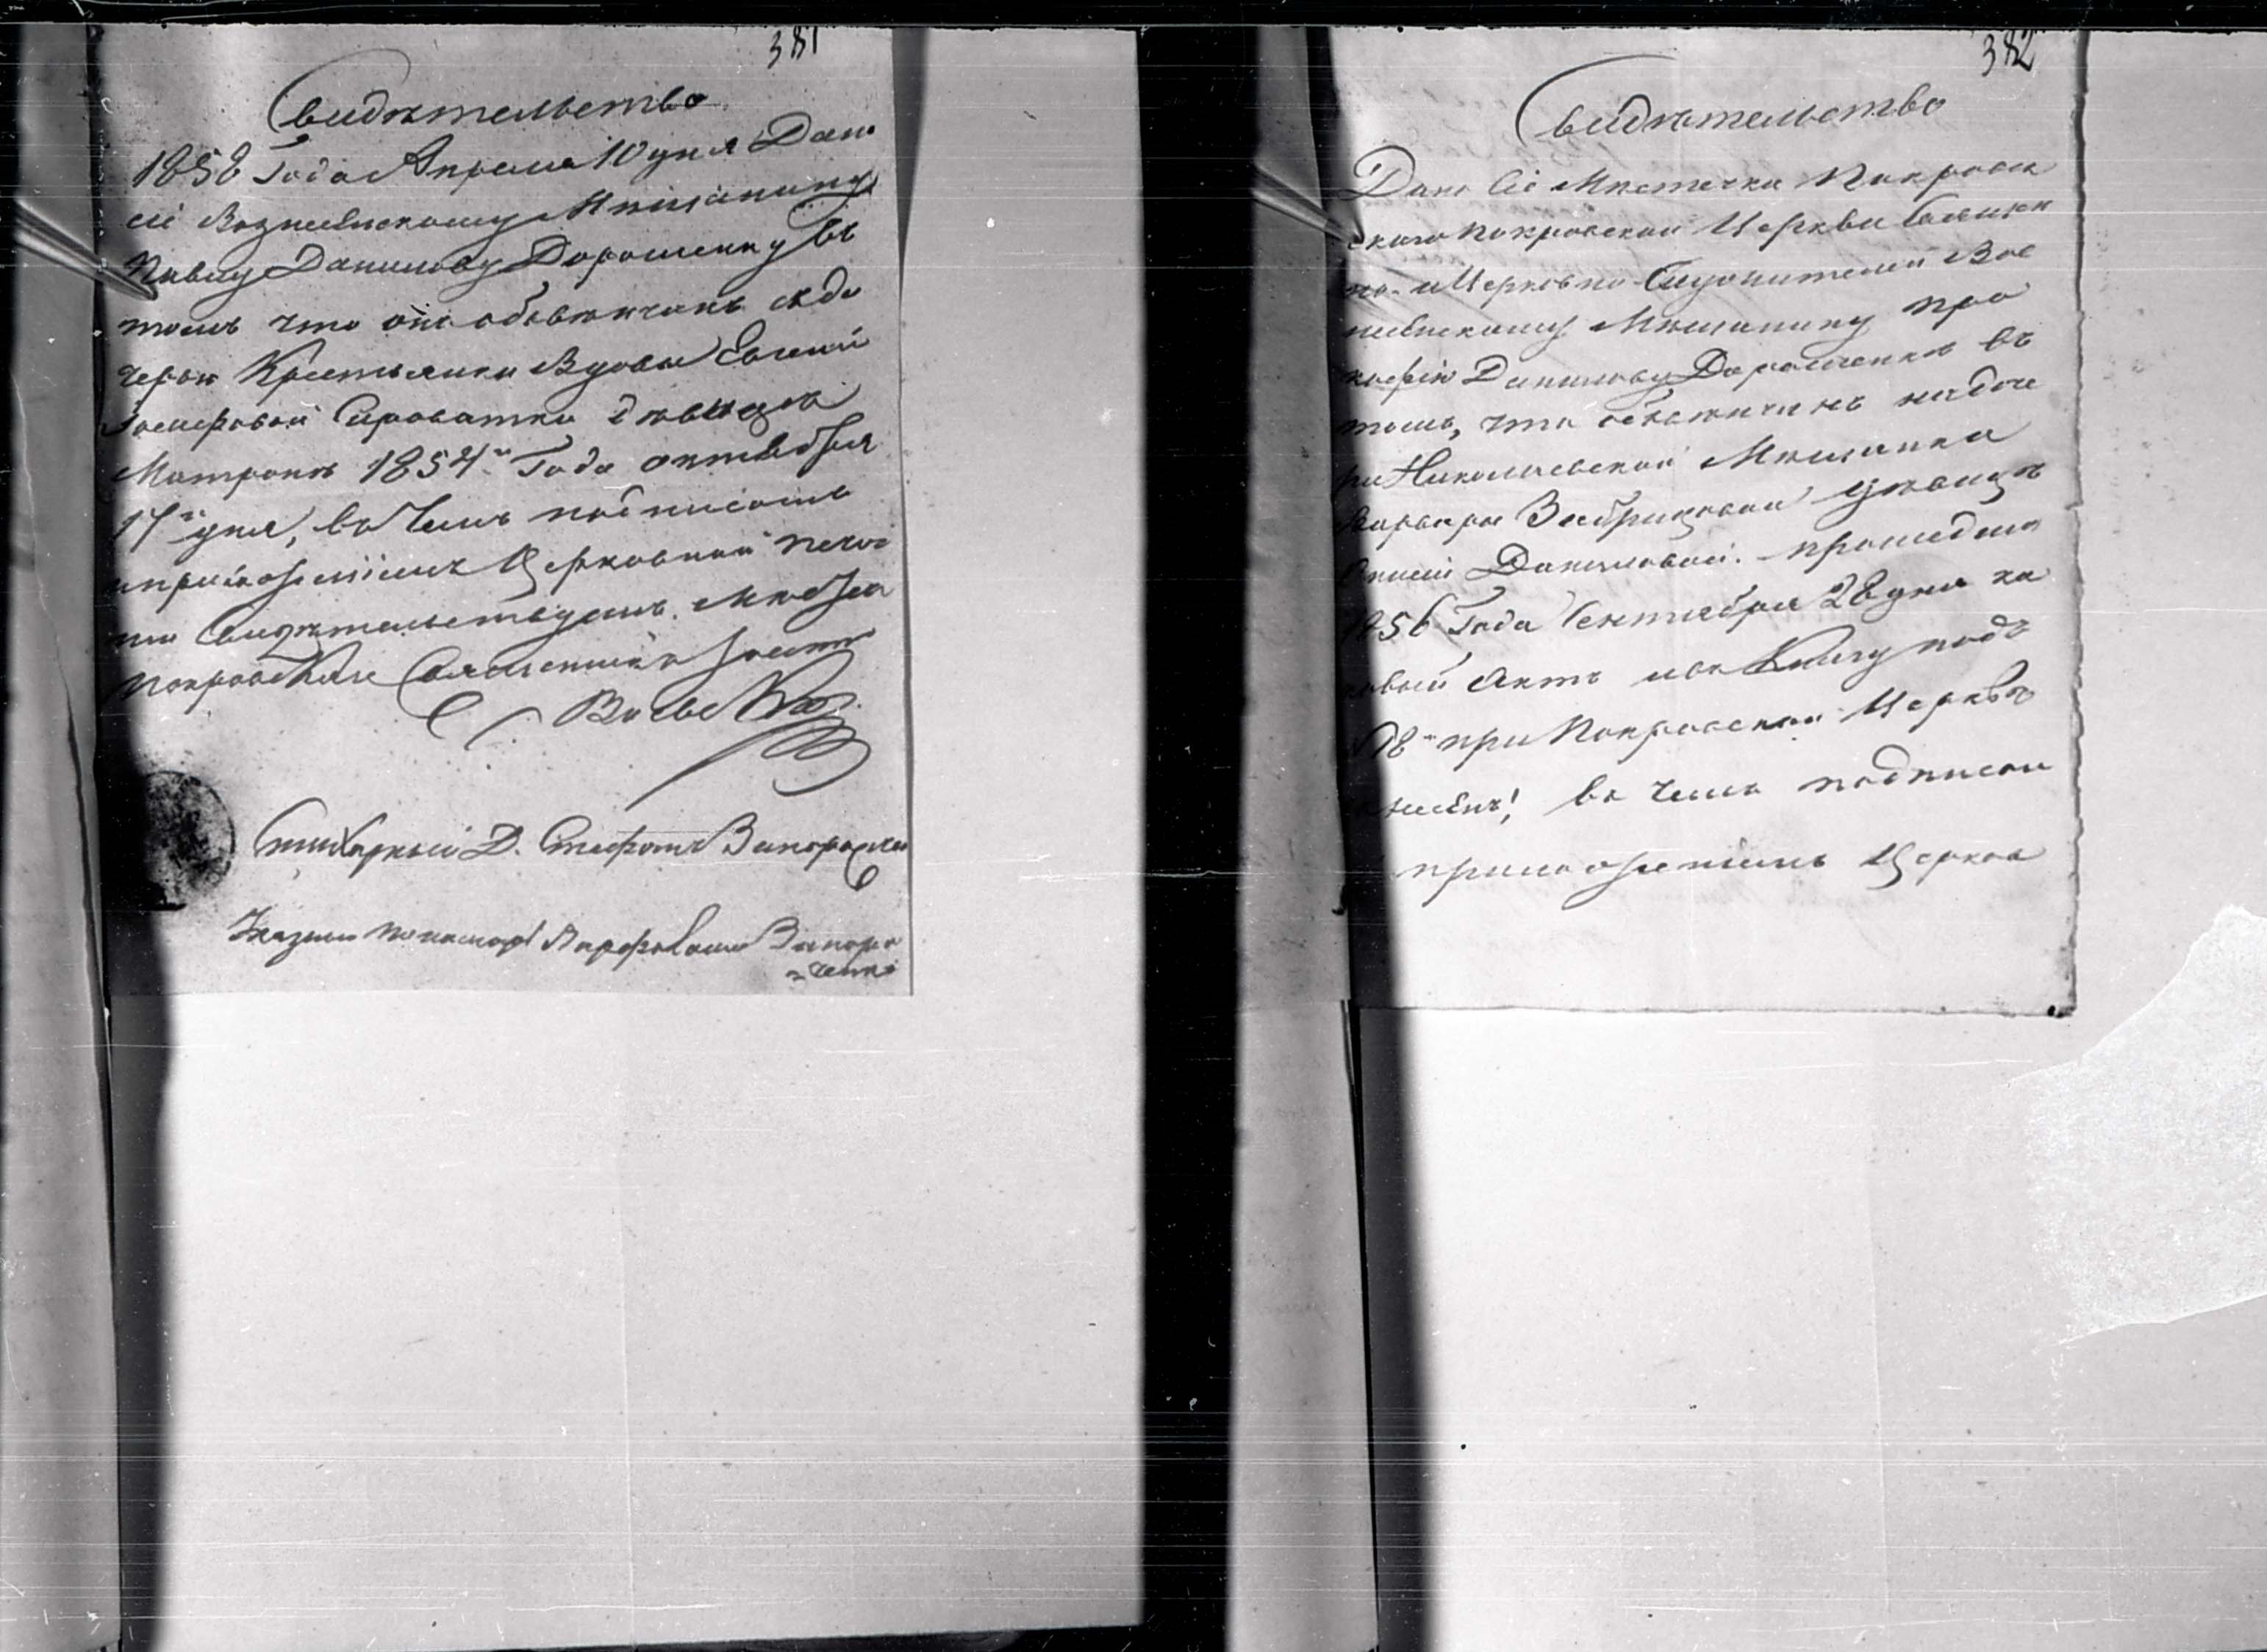 381
Свидѣтельство
1858 Года Апреля 10 дня Дано
сіе Вознесенскому Мѣщанину
Павлу Данилову Дорошенку въ
томъ что онъ обвѣнчанъ съ до
черью Крестьянки Вдовы Евгеніи
Сироватки дѣвицею
Матроною 1854го Года октября
17го дня, въ чемъ подписомъ
и приложеніемъ Церковной печа
ти Свидѣтельствуемъ. Мѣстеч
Покровскаго Священникъ

Стихарный Д. Стефанъ Запорожче

Указный пономарь Запоро
ченко
382
Свидѣтельство
Дано сіе Мѣстечка Покровск
скаго Покровской Церкви Священ
но- и Церковно-Служителей Воз
несенскому Мѣщанину Про
кофію Данилову Дорошенкѣ въ
томъ, что обвѣнчанъ на доче
ри Николаевской Мѣщанки
Варвары дѣвицѣ
Даниловой. прошедша
1856 Года Сентября 28 дня ка
ковый Актъ и въ Книгу подъ
№18м при Покровской Церквѣ
въ чемъ подписом
приложеніемъ Церков